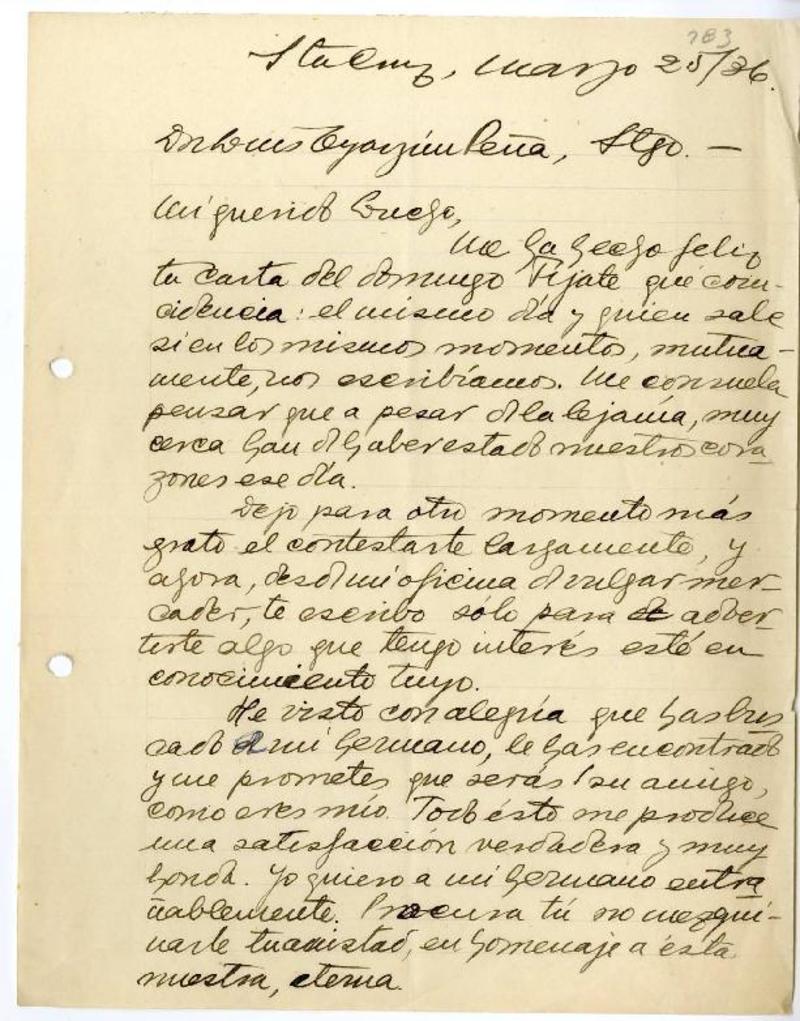 783
Sta Cruz, marzo 25/36.
Dn Luis Oyarzún Peña, Stgo. —
Mi querido Lucho,
Me ha hecho feliz
tu carta del domingo Fíjate qué coin-
cidencia: el mismo día y quien sabe
si en los mismos momentos, mutua-
mente, nos escribíamos. Me consuela
pensar que a pesar de la lejanía, muy
cerca han de haber estado nuestros cora
zones ese día.
Dejo para otro momento más
grato el contestarte largamente, y
agora, desde mi oficina de vulgar mer-
cader, te escribo sólo para adver-
tirte algo que tengo interés esté en
conocimiento tuyo.
He visto con alegría que has bus
cado a mi hermano, le has encontrado
y me prometes que serás su amigo,
como eres mío. Todo ésto me produce
una satisfacción verdadera y muy
honda. Yo quiero a mi hermano entra
ñablemente. Procura tú no mezqui-
narle tu amistad, en homenaje a ésta
nuestra, eterna.